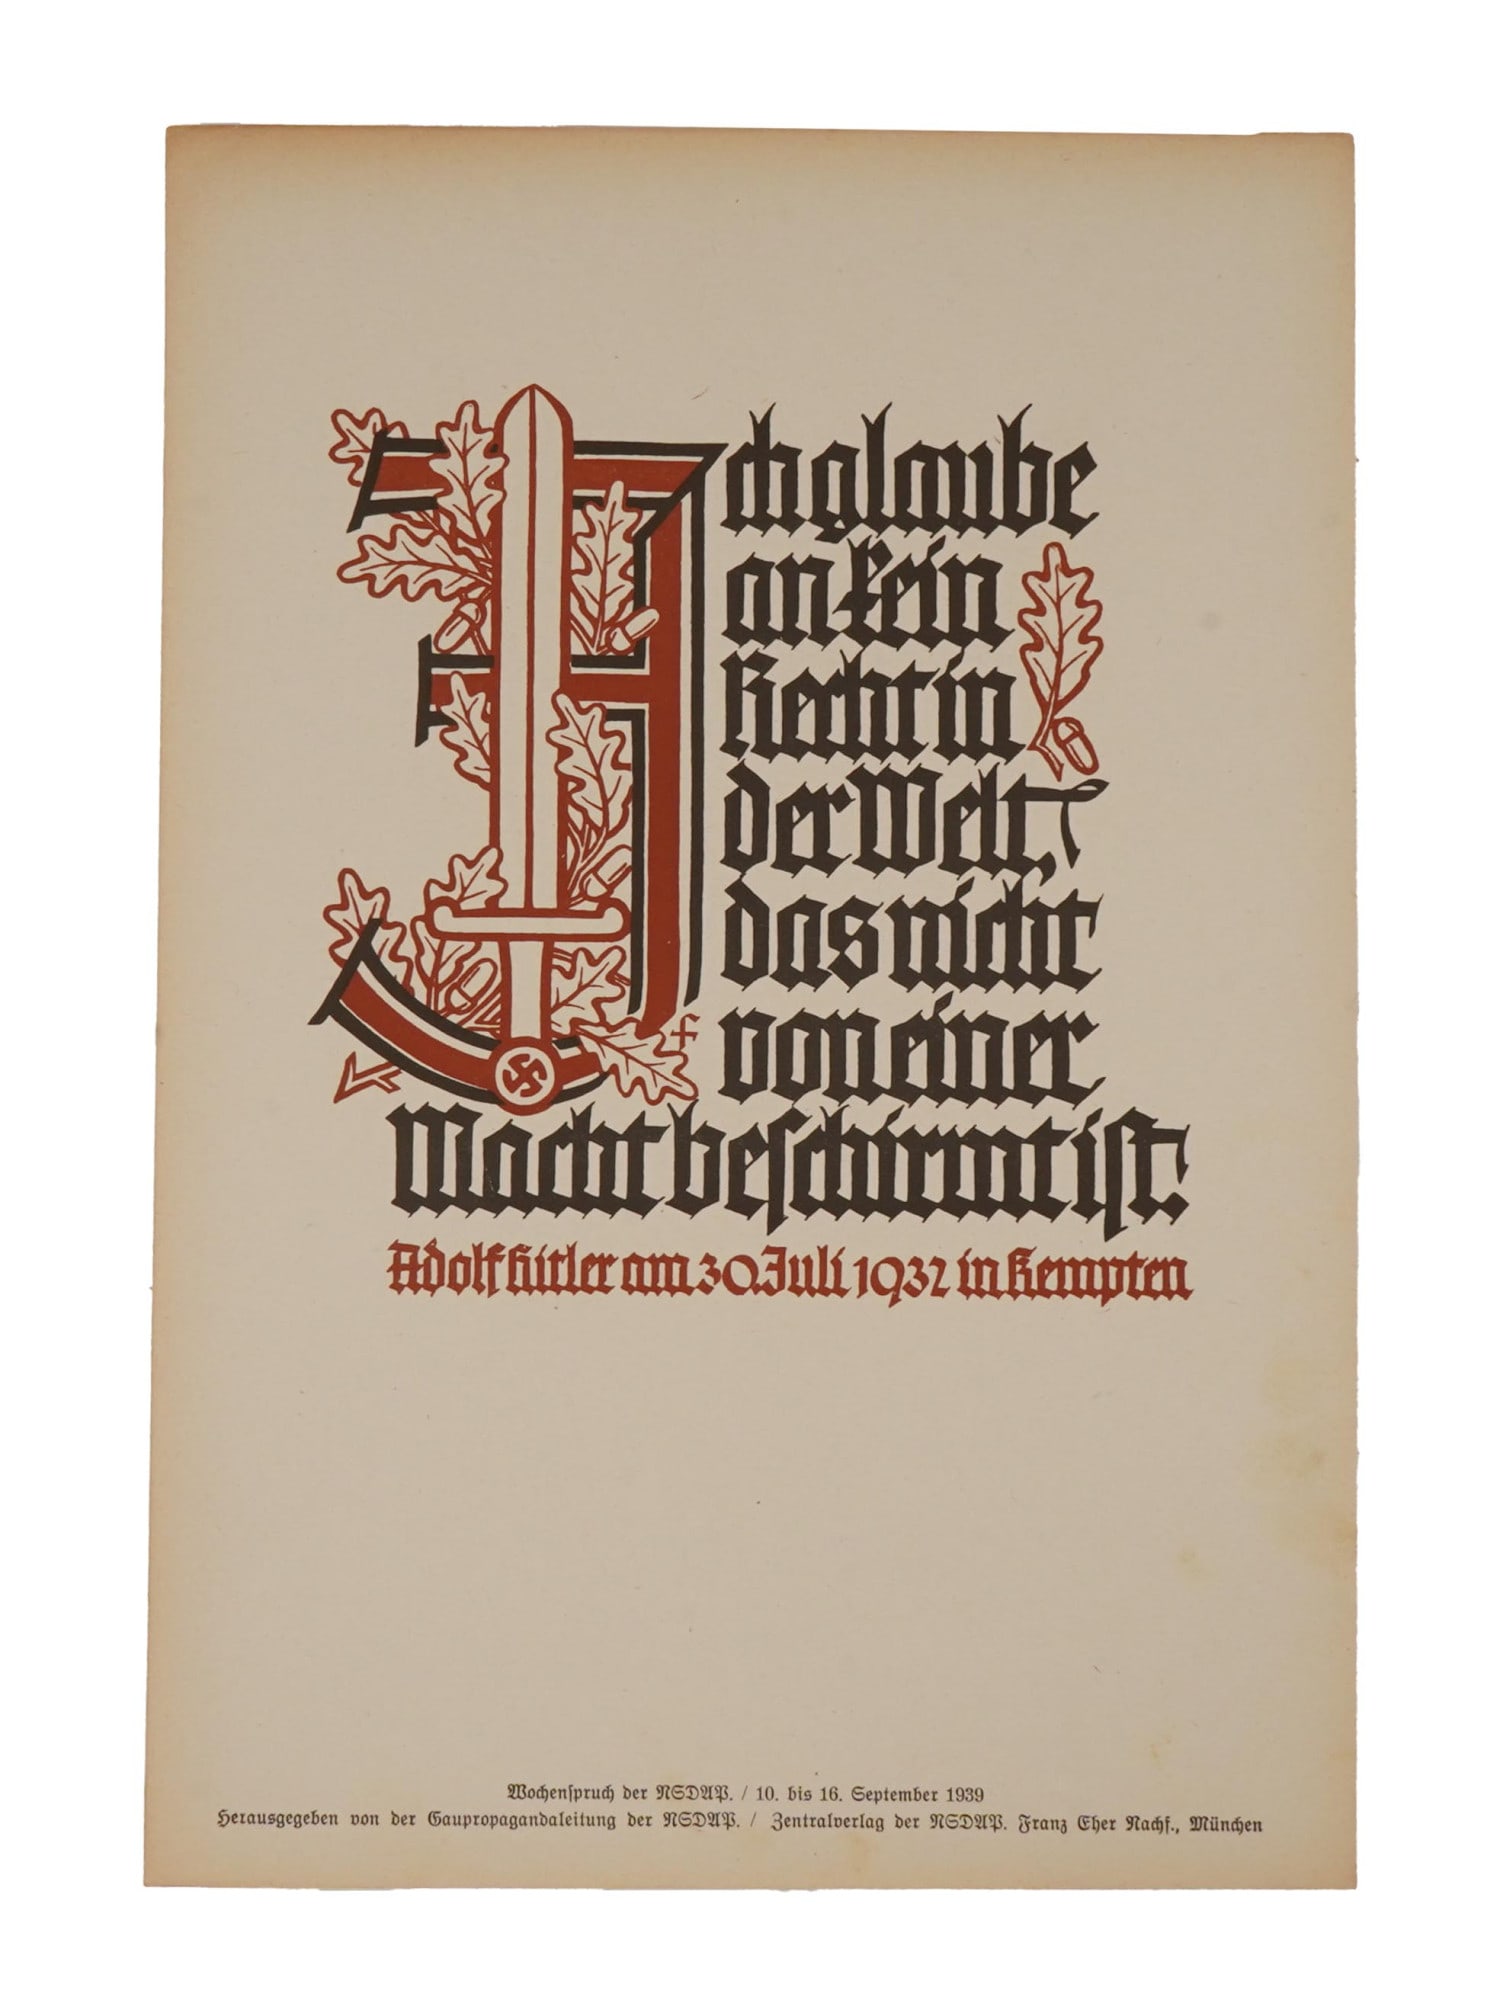 Ich glaube
an kein
Recht in
der Welt,
das nicht
von einer
Macht beschirmt ist.
Adolf Hitler am 30. Juli 1932 in Kempten
Wochenspruch der NSDAP. / 10. bis 16. September 1939
Herausgegeben von der Gaupropagandaleitung der NSDAP. / Zentralverlag der NSDAP. Franz Eher Nachf., München